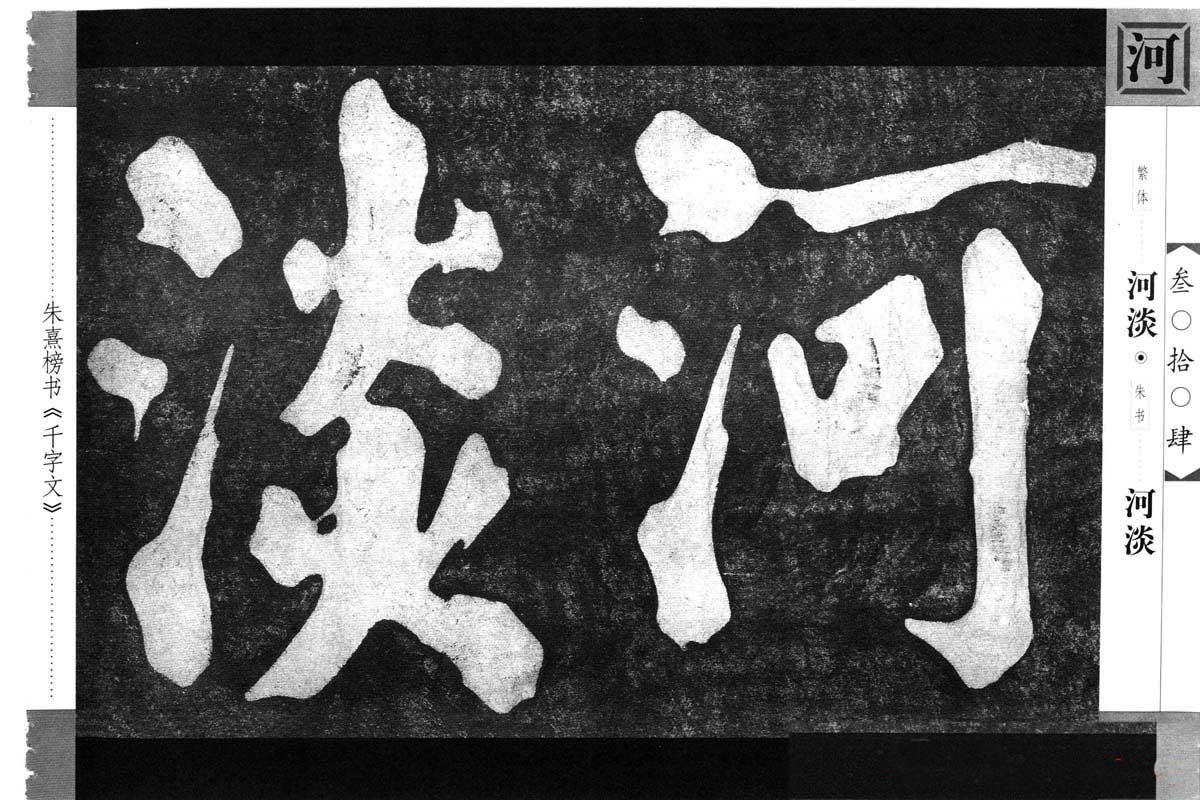 河
叁〇拾〇肆
繁体
河淡
朱书
河淡
河淡
朱熹榜书《千字文》